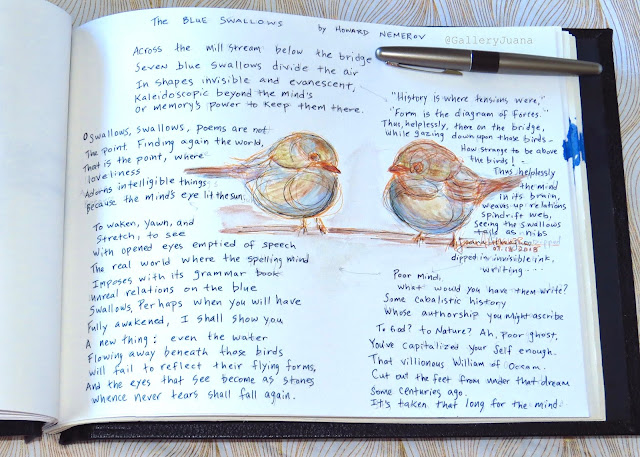 The Blue Swallows by Howard Nemerov
@GalleryJuana
Across the mill stream below the bridge
Seven blue swallows divide the air
In shapes invisible and evanescent,
Kaleidoscopic beyond the mind's
or memory's power to keep them there.
"History is where tensions were,"
"Form is the diagram of forces."
Thus, helplessly, there on the bridge,
while gazing down upon those birds—
How strange to be above
the birds! —
Thus helplessly
the mind
in its brain,
weaves up relations
spindrift web,
seeing the swallows
tails as nibs
07.18.2018
dipped in invisible ink,
writing...
Poor mind,
what would you have them write?
Some cabalistic history
Whose authorship you might ascribe
To God? to Nature? Ah, poor ghost,
You've capitalized your self enough.
That villionous William of Occam.
Cut out the feet from under that dream
Some centuries ago.
It's taken that long for the mind
O swallows, swallows, poems are not
The point. Finding again the world,
That is the point, where
loveliness
Adorns intelligible things
Because the mind's eye lit the sun.
To waken, yawn, and
stretch, to see
with opened eyes emptied of speech
The real world where the spelling mind
Imposes with its grammar book
unreal relations on the blue
Swallows, Perhaps when you will have
Fully awakened, I shall show you
A new thing: even the water
Flowing away beneath those birds
will fail to reflect their flying forms,
And the eyes that see become as stones
whence never tears shall fall again.